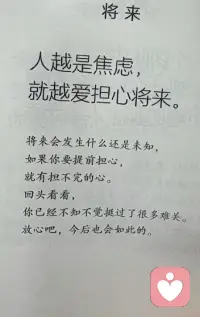 将来
人越是焦虑，
就越爱担心将来。
将来会发生什么还是未知，
如果你要提前担心，
就有担不完的心。
回头看看，
你已经不知不觉挺过了很多难关。
放心吧，今后也会如此的。